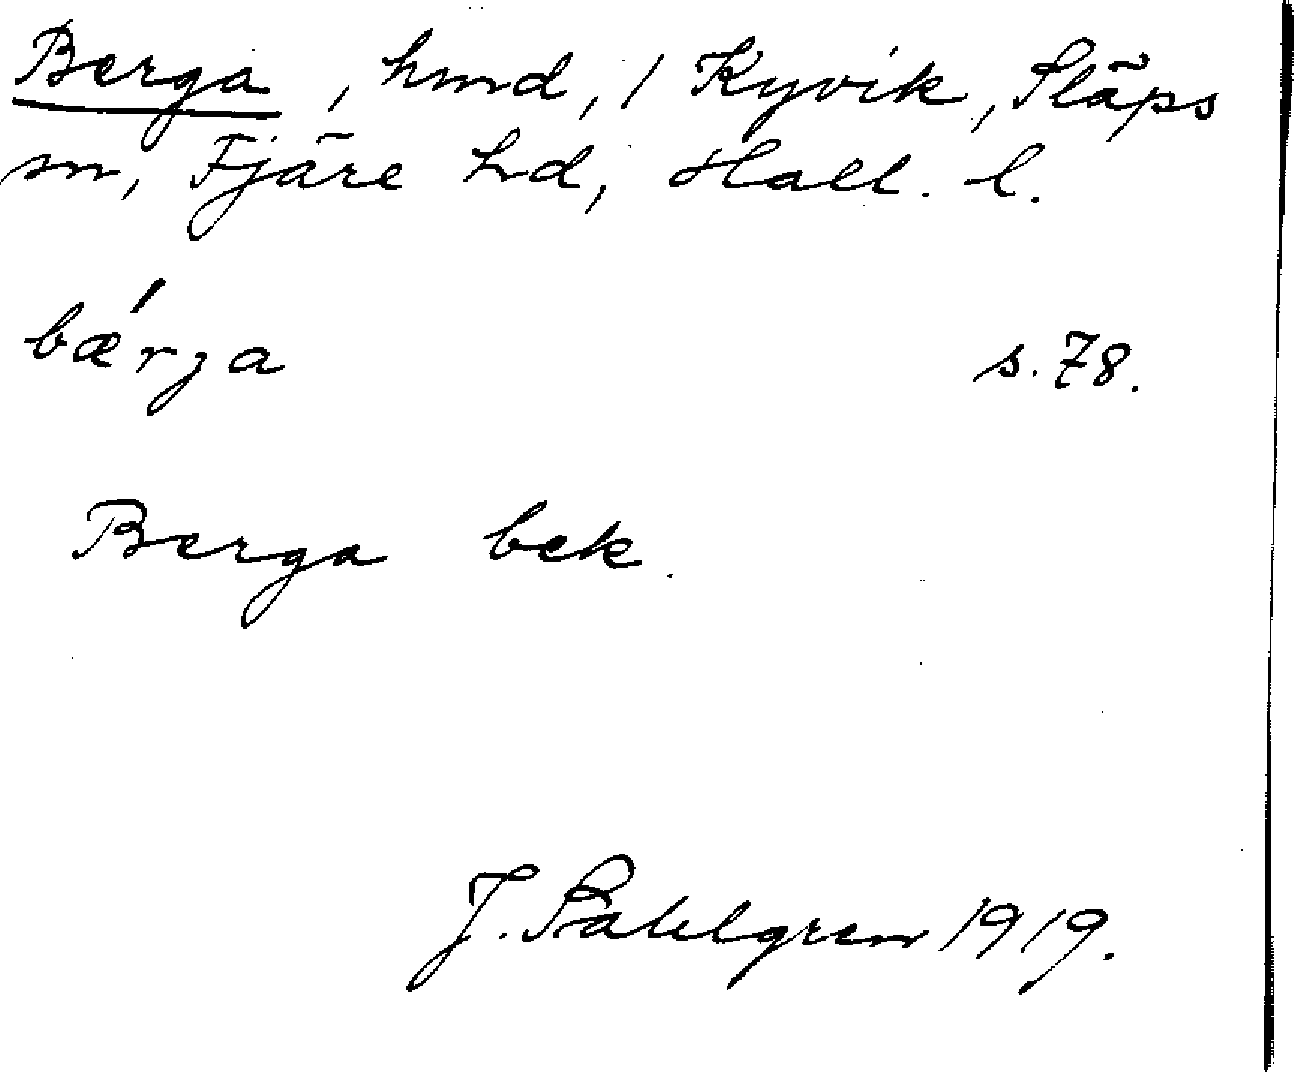 Berga, hmd, / Kyvik, Släps
sn, Fjäre hd, Hall. l.
bǽrja s. 78.
Berga bek.
J. Sahlgren 1919.